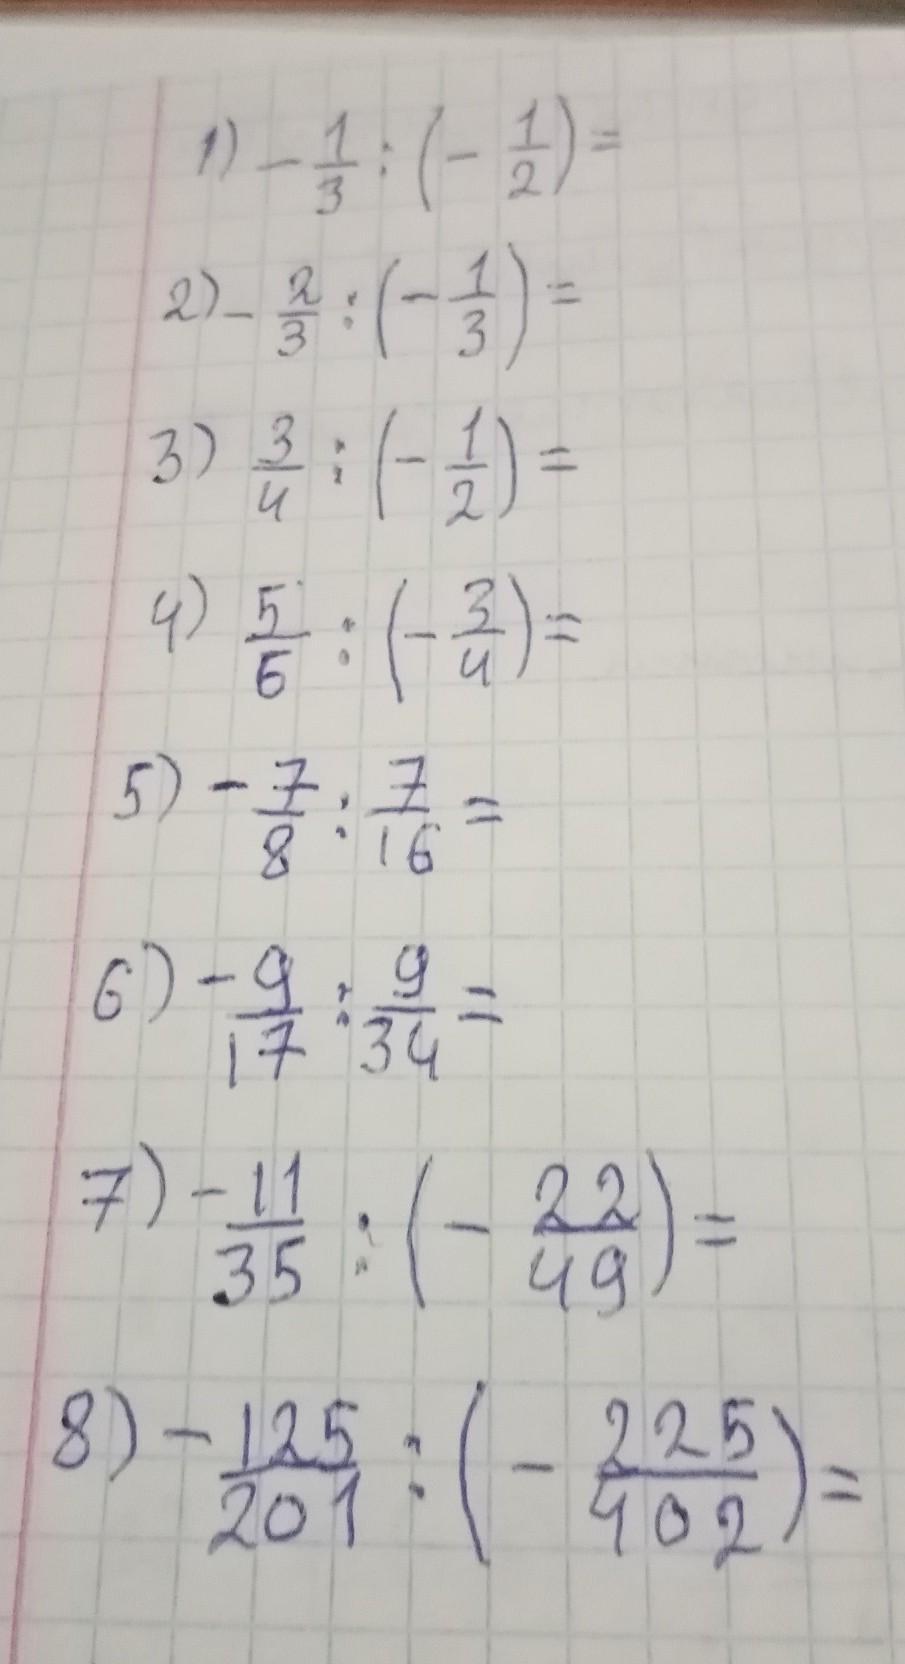 1) - 1/3 : (- 1/2) =
2) - 2/3 : (- 1/3) =
3) 3/4 : (- 1/2) =
4) 5/6 : (- 3/4) =
5) - 7/8 : 7/16 =
6) - 9/17 : 9/34 =
7) - 11/35 : (- 22/49) =
8) - 125/201 : (- 225/402) =